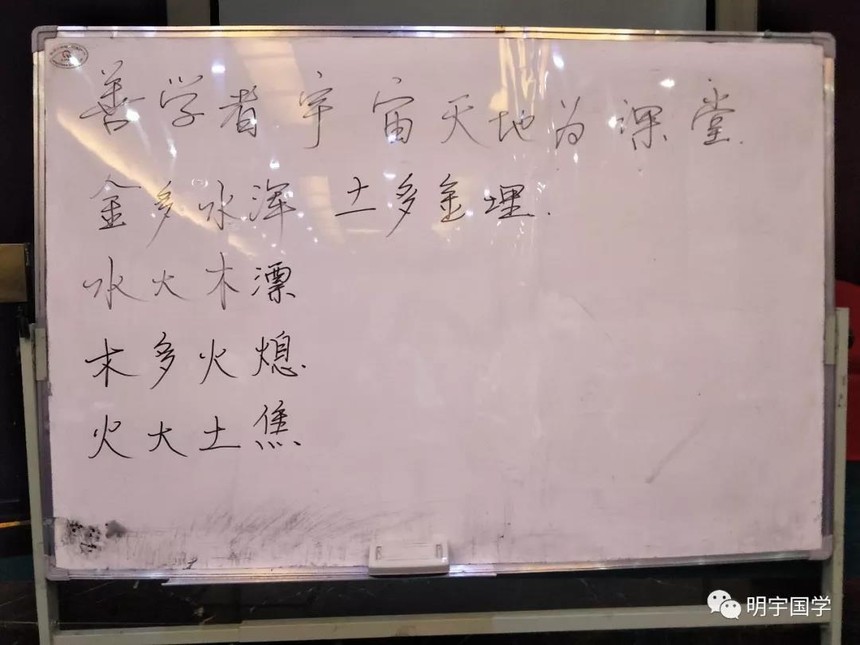 善学者宇宙天地为课堂.
金多水浑 土多金埋.
水火木漂
木多火熄.
火大土焦
明宇国学